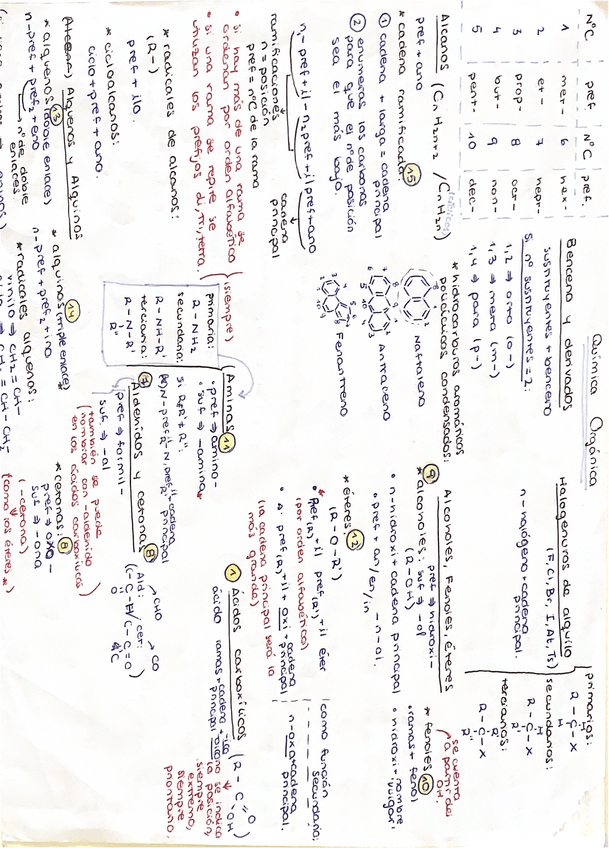 Química Orgánica
NºC pref NºC pref.
1 met- 6 hex-
2 et- 7 hept-
3 prop- 8 oct-
4 but- 9 non-
5 pent- 10 dec-
Alcanos (CnH2n+2 / CnH2n)
pref + ano
* cadena ramificada: 15
① cadena + larga = cadena principal
② enumeras los carbonos para que el nº de posición sea el más bajo
n - pref + il - n2 pref + il pref + ano
ramificaciones
cadena principal
n = posición
pref = nºC de la rama
• si hay más de una rama se ordenan por orden alfabético (siempre)
• si una rama se repite se utilizan los prefijos di, tri, tetra.
* radicales de alcanos:
(R-)
pref + ilo.
* cicloalcanos:
ciclo + pref + ano.
Alquenos y Alquinos
* alquenos (doble enlace) 13
n-pref + pref2 + eno
nº de doble enlaces
* alquinos (triple enlace) 14
n-pref + pref2 + ino
* radicales alquenos:
vinilo ⇒ CH2 = CH-
Benceno y derivados
sustituyentes + benceno
Si nº sustituyentes = 2:
1,2 ⇒ orto (o-)
1,3 ⇒ meta (m-)
1,4 ⇒ para (p-)
* hidrocarburos aromáticos policíclicos condensados:
Naftaleno
Antraceno
Fenantreno
Aminas 11
• pref ⇒ amino-
• suf ⇒ -amina
primaria:
R - NH2
secundaria:
R - NH - R'
terciaria:
R - N - R'
R''
Si R≠R'≠R'':
Aldehídos y cetonas 8
pref ⇒ formil-
suf ⇒ -al
(también se puede nombrar con -aldehído en los ácidos carboxílicos)
* cetonas: 8
pref ⇒ oxo-
suf ⇒ -ona
(-cetona)
(como los éteres *)
Ald: CHO
cet: CO
Halogenuros de alquilo
(F, Cl, Br, I, At, Ts)
n-halógeno + cadena principal.
primarios:
secundarios:
terciarios:
Alcoholes, Fenoles, éteres
* alcoholes: 9
pref ⇒ hidroxi-
suf ⇒ -ol
(R - OH)
• n-hidroxi + cadena principal
• pref + an/en/in - n - ol.
* fenoles 10
se cuenta a partir del OH
• ramas + fenol
• hidroxi + nombre vulgar
* éteres: 12
(R - O - R')
• Pref(R) + il pref(R') + il éter
(por orden alfabético)
• n- pref(R) + il + oxi + cadena principal
(la cadena principal será la más grande)
(como función secundaria:
n-oxa + cadena principal.
① Ácidos carboxílicos
ácido ramas + cadena principal + oico
no se indica la posición, siempre extremo, siempre prioritario.